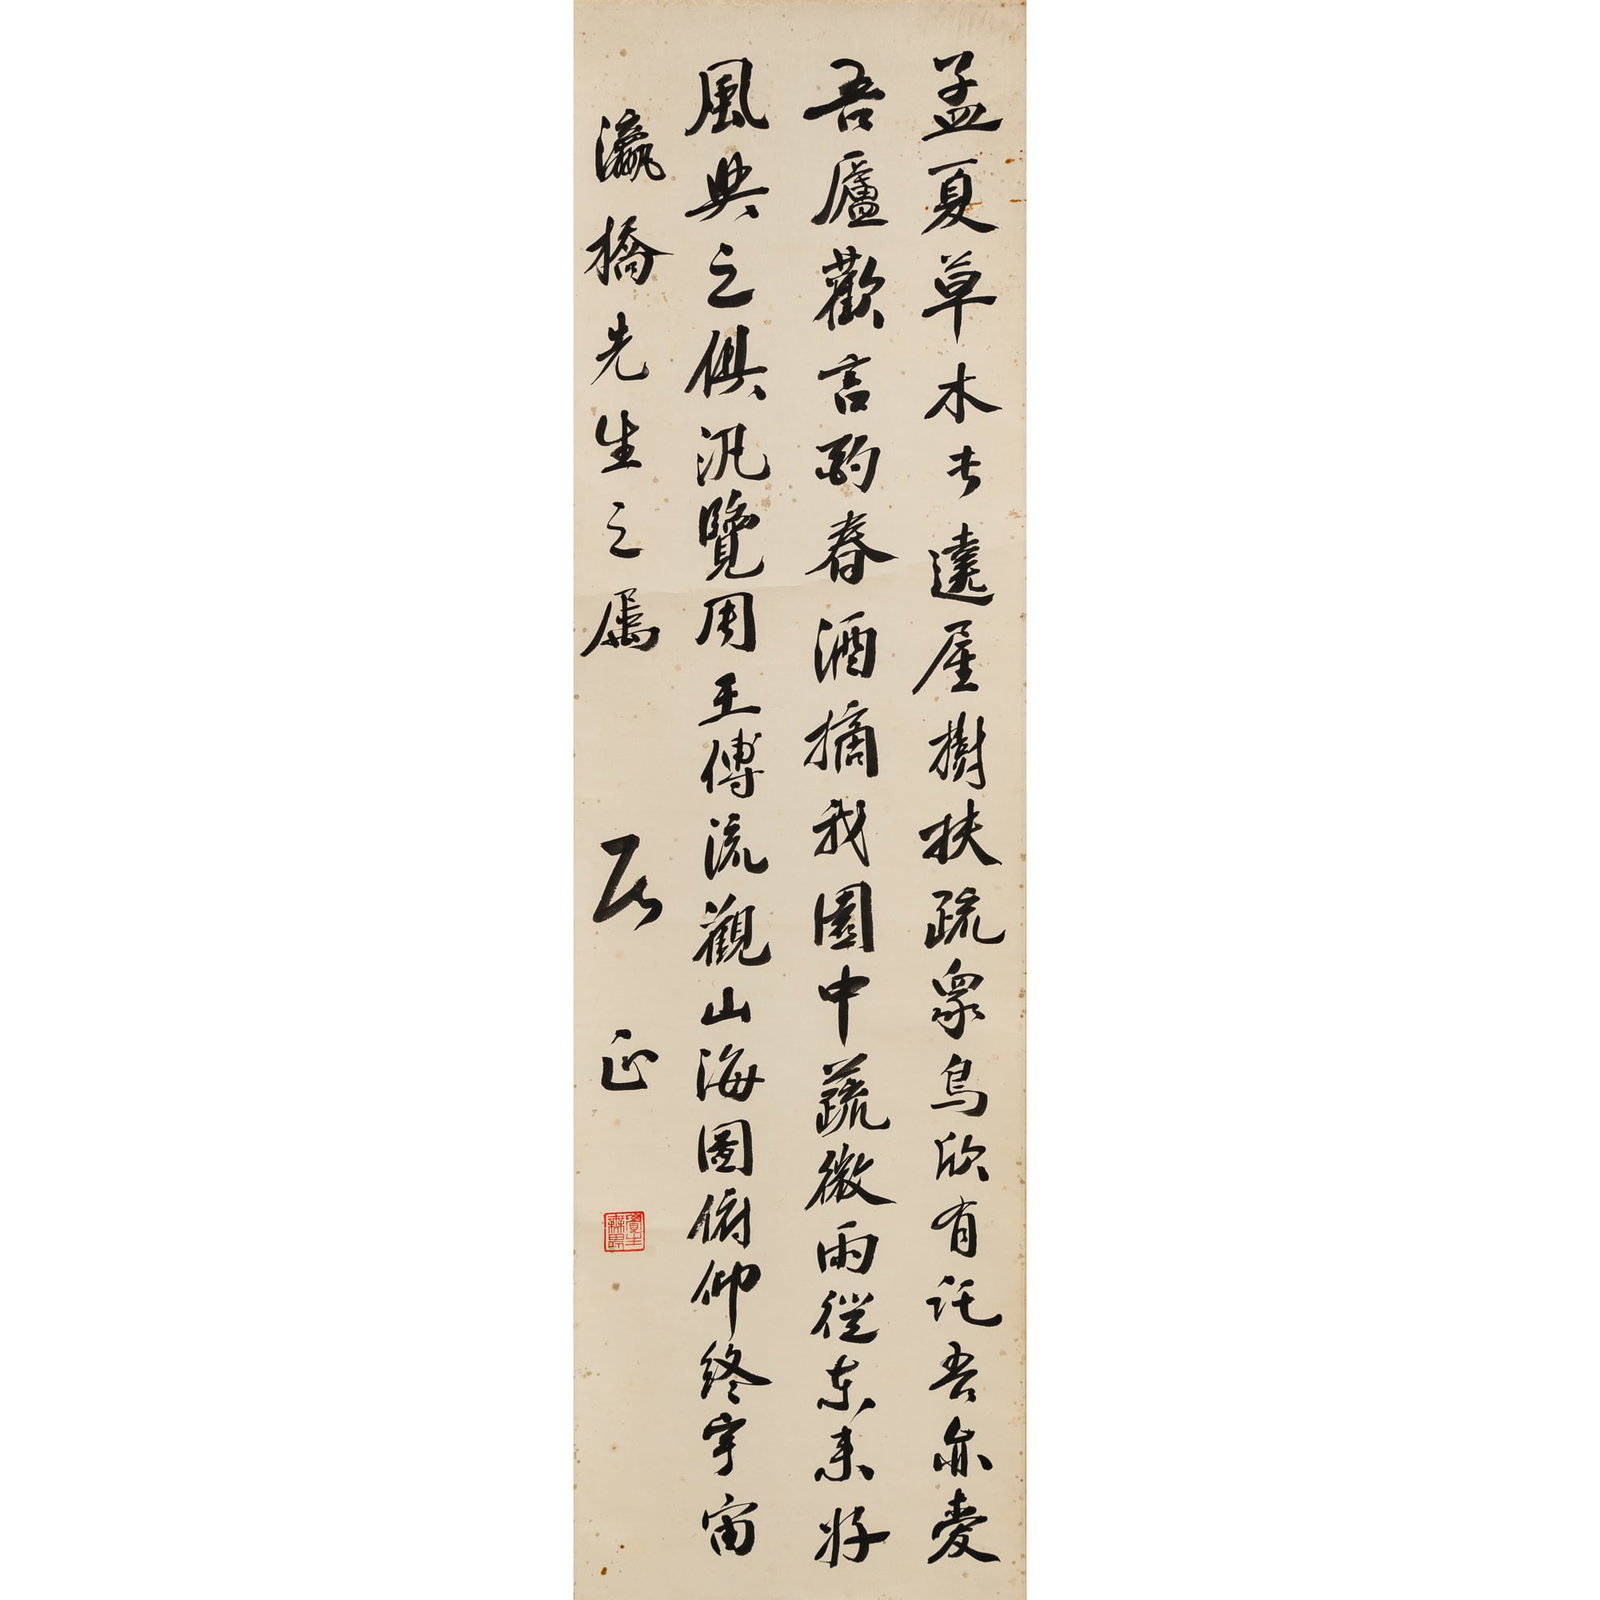 孟夏草木長遶屋樹扶疏衆鳥欣有託吾亦愛
吾廬歡言酌春酒摘我園中蔬微雨從東來好
風與之俱汎覽周王傳流觀山海圖俯仰終宇宙
瀛橋先生之属 居正
覺生